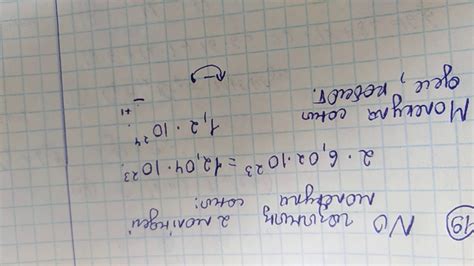 19 NO газының 2 моліндегі
молекула саны:
2 · 6,02 · 10²³ = 12,04 · 10²³
1,2 · 10²⁴
Молекула саны